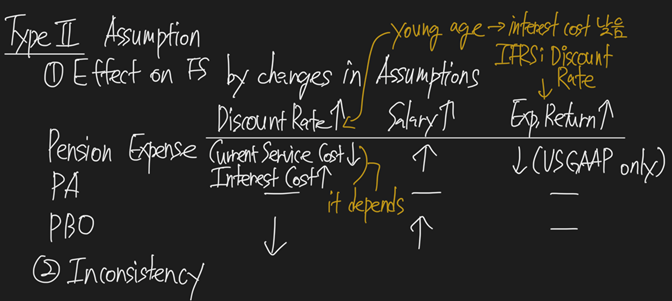 Type II Assumption
① Effect on FS by changes in Assumptions
young age → interest cost 낮음
IFRS: Discount
Rate
↓
Discount Rate↑ Salary↑ Exp. Return↑
Pension Expense Current Service Cost↓ ↑ ↓ (US GAAP only)
Interest Cost↑
it depends
PA — — —
PBO ↓ ↑ —
② Inconsistency